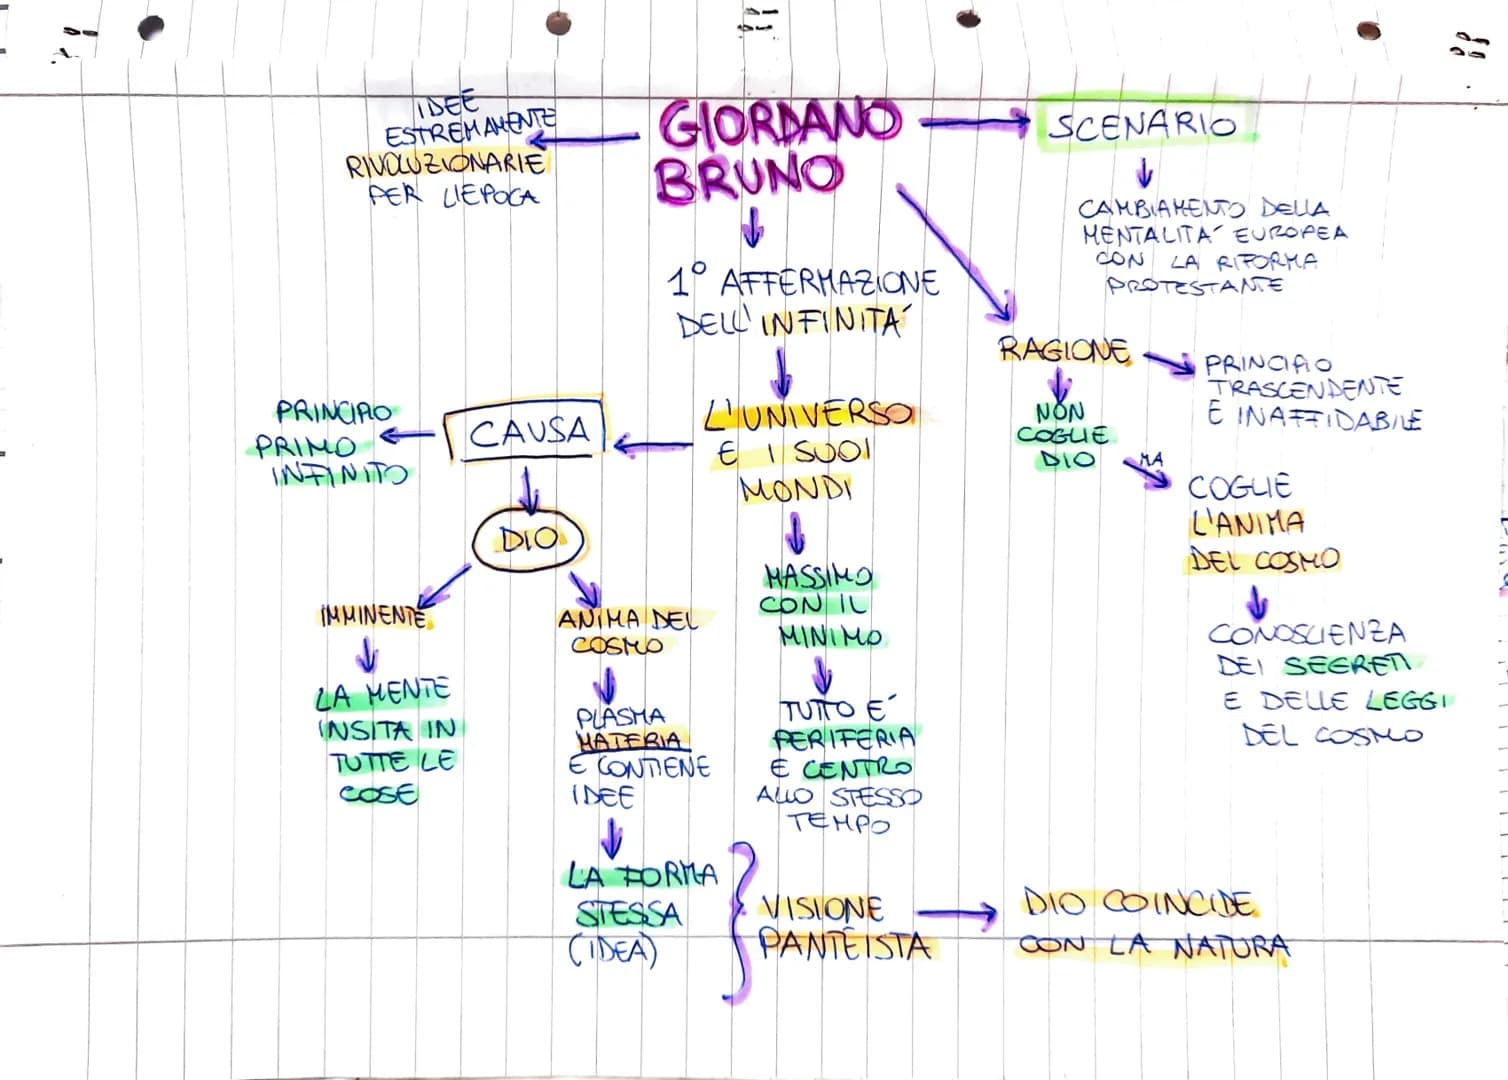 GIORDANO
BRUNO
IDEE
ESTREMAMENTE
RIVOLUZIONARIE
PER L'EPOCA
SCENARIO
CAMBIAMENTO DELLA
MENTALITA' EUROPEA
CON LA RIFORMA
PROTESTANTE
1° AFFERMAZIONE
DELL'INFINITA'
RAGIONE
PRINCIPIO
TRASCENDENTE
E INAFFIDABILE
NON
COGLIE
DIO
MA
COGLIE
L'ANIMA
DEL COSMO
CONOSCIENZA
DEI SEGRETI
E DELLE LEGGI
DEL COSMO
L'UNIVERSO
E I SUOI
MONDI
CAUSA
PRINCIPIO
PRIMO
INFINITO
DIO
IMMINENTE
LA MENTE
INSITA IN
TUTTE LE
COSE
ANIMA DEL
COSMO
PLASMA
MATERIA
E CONTIENE
IDEE
LA FORMA
STESSA
(IDEA)
MASSIMO
CON IL
MINIMO
TUTTO E'
PERIFERIA
E CENTRO
ALLO STESSO
TEMPO
VISIONE
PANTEISTA
DIO COINCIDE
CON LA NATURA